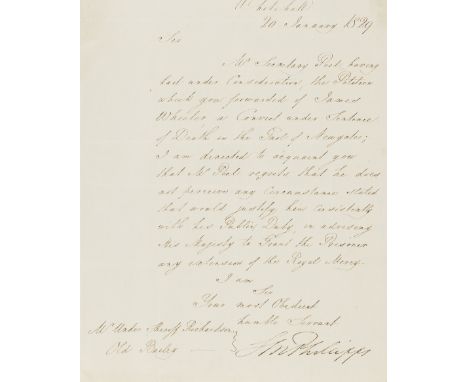 Whitehall
20 January 1829
Sir
Mr Secretary Peel having
had under Consideration, the Petition
which you forwarded of James
Wheeler a Convict under Sentence
of Death in the Gaol of Newgate;
I am directed to acquaint you
that Mr Peel regrets that he does
not perceive any Circumstance stated
that would justify him Consistently
with his Public Duty, in advising
His Majesty to Grant the Prisoner
any extension of the Royal Mercy.
I am
Sir
Your most Obedient
humble Servant
Mr Under Sheriff Richardson
Old Bailey
S M Phillipps